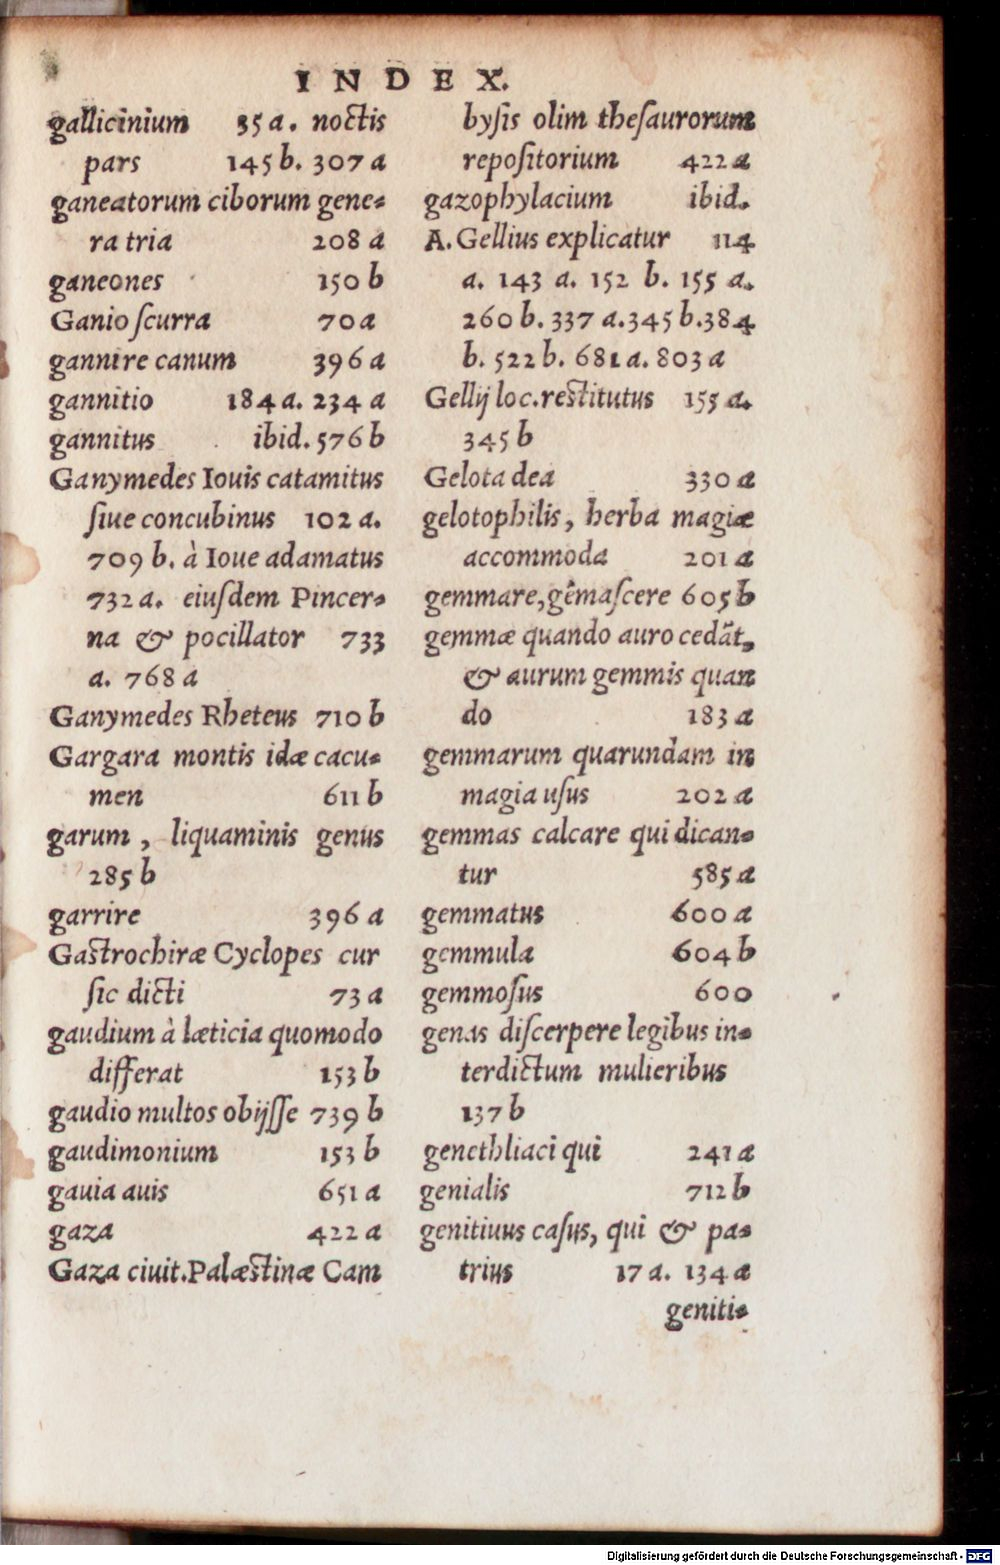 INDEX.
gallicinium 35 a. noctis
pars 145 b. 307 a
ganeatorum ciborum gene-
ra tria 208 a
ganeones 150 b
Ganio ſcurra 70 a
gannire canum 396 a
gannitio 184 a. 234 a
gannitus ibid. 576 b
Ganymedes Iouis catamitus
ſiue concubinus 102 a.
709 b. à Ioue adamatus
732 a. eiuſdem Pincer-
na & pocillator 733
a. 768 a
Ganymedes Rheteus 710 b
Gargara montis idæ cacu-
men 611 b
garum, liquaminis genus
285 b
garrire 396 a
Gaſtrochiræ Cyclopes cur
ſic dicti 73 a
gaudium à læticia quomodo
differat 153 b
gaudio multos obijſſe 739 b
gaudimonium 153 b
gauia auis 651 a
gaza 422 a
Gaza ciuit. Palæſtinæ Cam
byſis olim theſaurorum
repoſitorium 422 a
gazophylacium ibid.
A. Gellius explicatur 114
a. 143 a. 152 b. 155 a.
260 b. 337 a. 345 b. 384
b. 522 b. 681 a. 803 a
Gellij loc. reſtitutus 155 a.
345 b
Gelota dea 330 a
gelotophilis, herba magiæ
accommoda 201 a
gemmare, gẽmaſcere 605 b
gemmæ quando auro cedãt,
& aurum gemmis quan
do 183 a
gemmarum quarundam in
magia uſus 202 a
gemmas calcare qui dican-
tur 585 a
gemmatus 600 a
gemmula 604 b
gemmoſus 600
genas diſcerpere legibus in-
terdictum mulieribus
137 b
genethliaci qui 241 a
genialis 712 b
genitiuus caſus, qui & pa-
trius 17 a. 134 a
geniti-
Digitalisierung gefördert durch die Deutsche Forschungsgemeinschaft - DFG